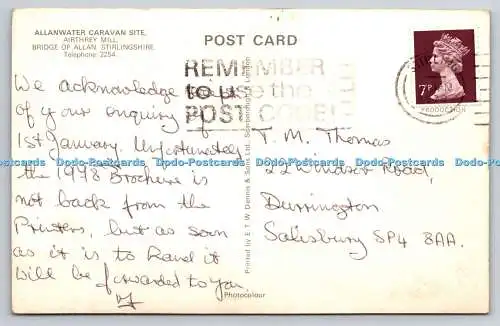 ALLANWATER CARAVAN SITE,
AIRTHREY MILL,
BRIDGE OF ALLAN STIRLINGSHIRE.
Telephone: 2254
POST CARD
REMEMBER
to use the
POST CODE!
7P
PRODUCTION
We acknowledge
of your enquiry of
1st January. Unfortunately
the 1978 Brochure is
not back from the
Printers, but as soon
as it is to hand it
will be forwarded to you.
T. M. Thomas
22 Windsor Road,
Durrington
Salisbury SP4 8AA.
Printed by E T W Dennis & Sons Ltd., Scarborough & London
Photocolour
Dodo-Postcards Dodo-Postcards Dodo-Postcards Dodo-Postcards Dodo-Postcards
www.dodo-postcards.com